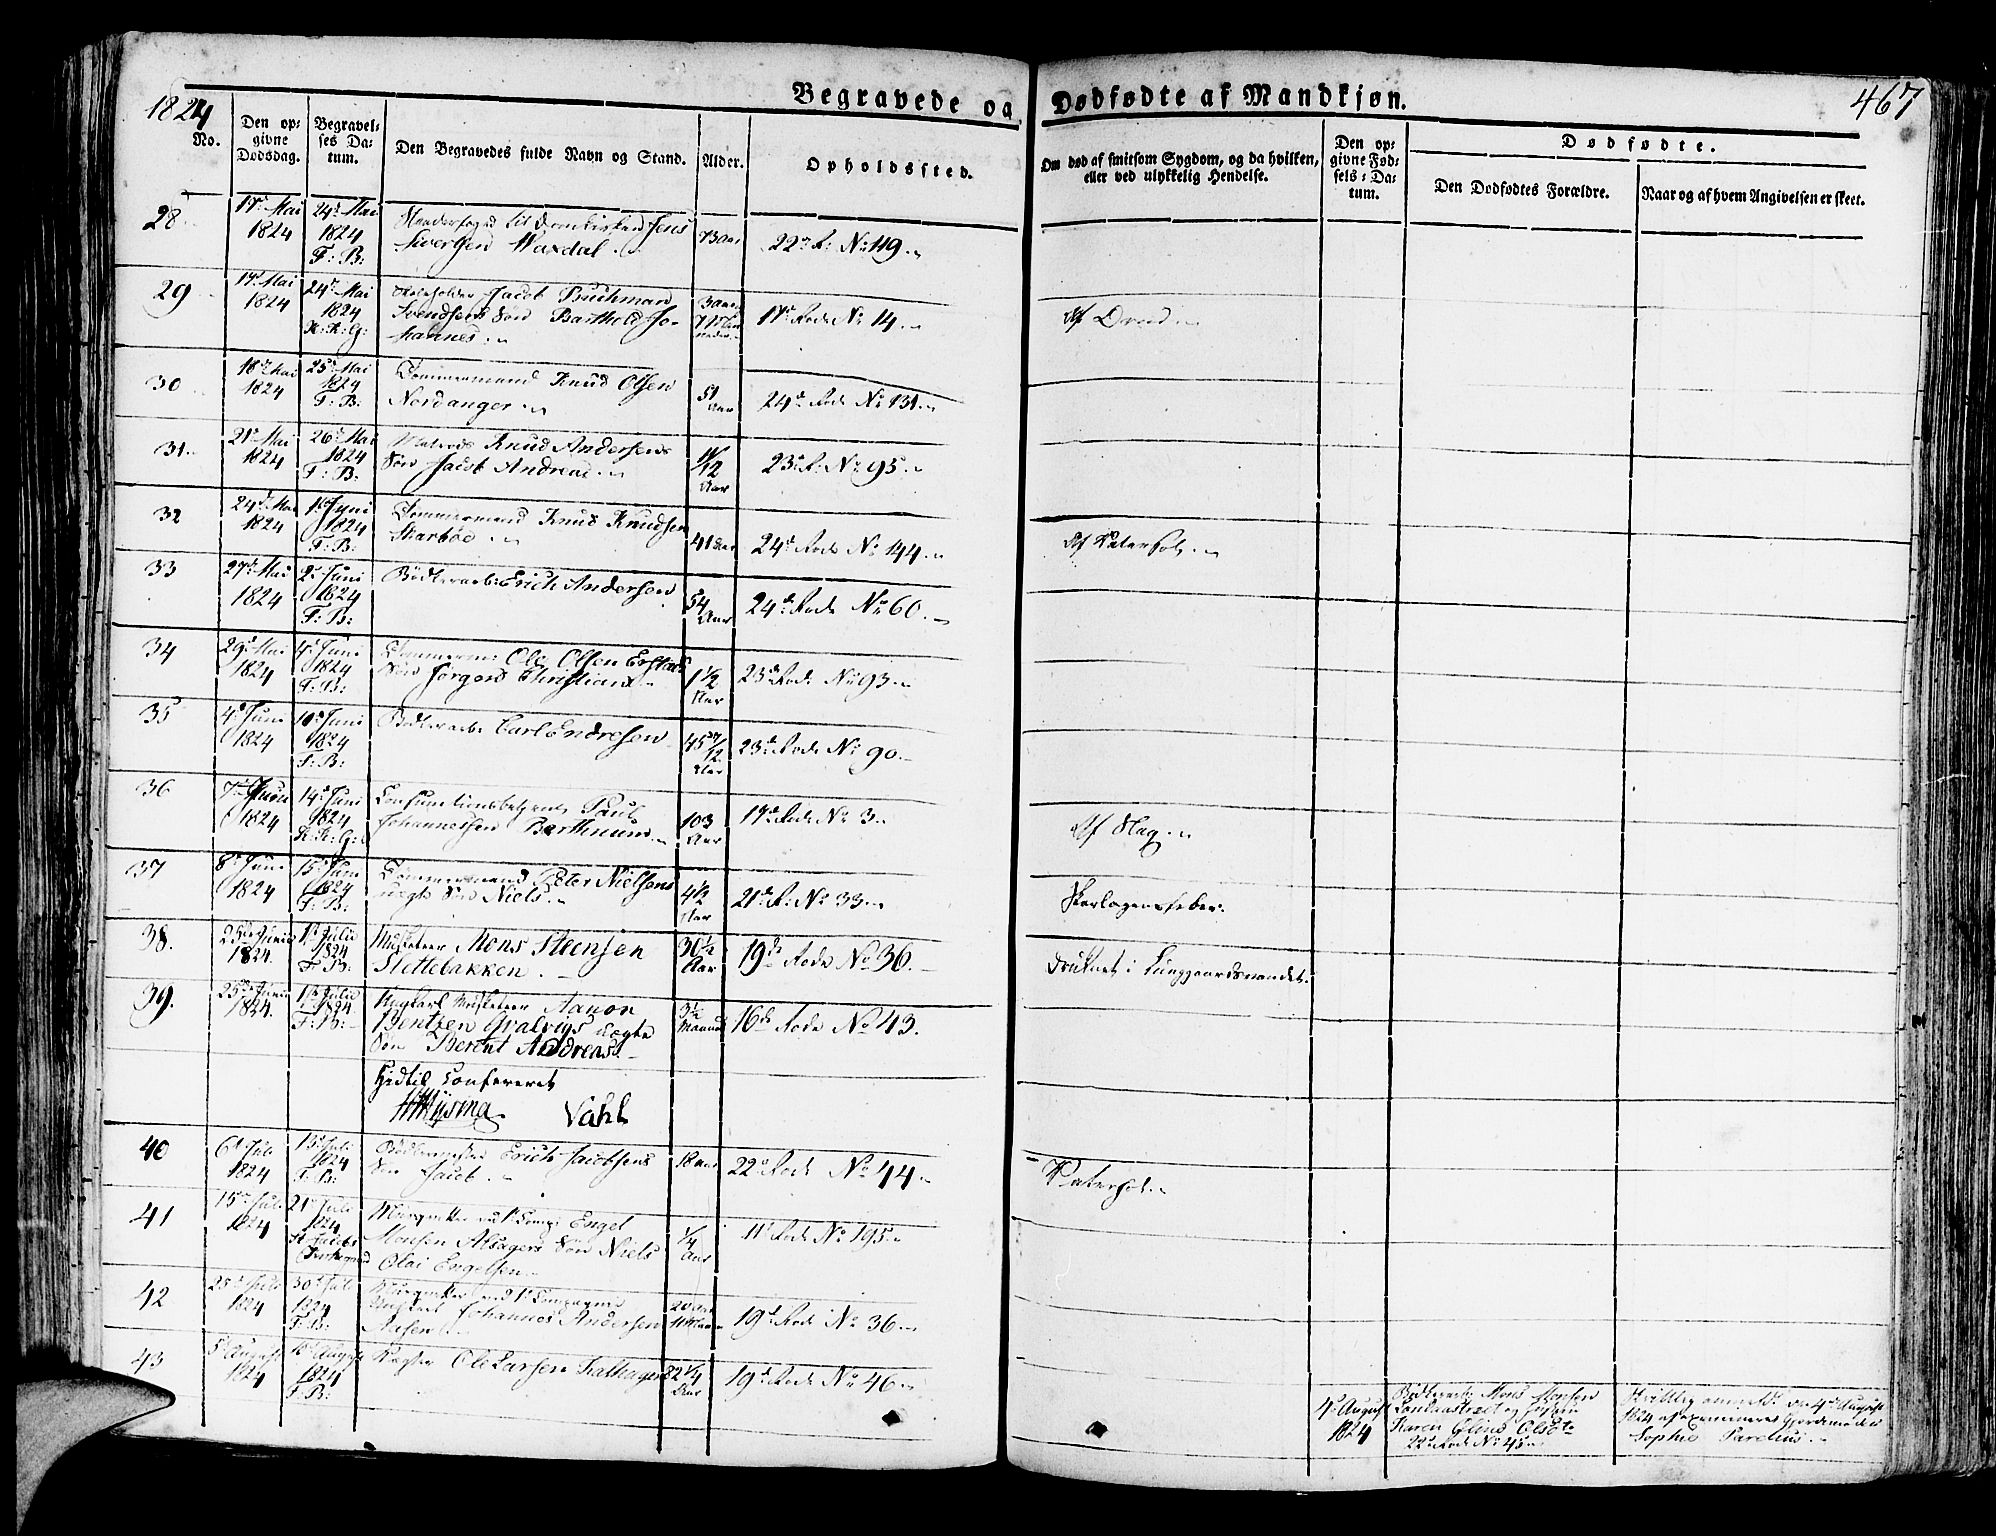 1824
Begravede og Dødfødte af Mandkjøn.
467
No.
Den op=
givne
Dødsdag.
Begravel=
ses Da=
tum.
Den Begravedes fulde Navn og Stand.
Alder.
Opholdssted.
Om død af smitsom Sygdom, og da hvilken,
eller ved ulykkelig Hendelse.
Den op=
givne Fød=
sels=Da=
tum.
Dødfødte.
Den Dødfødtes Forældre.
Naar og af hvem Angivelsen er skeet.
28
17de Mai
1824
24de Mai
1824
F: B:
til Domkirken Jens
Siversen Waxdal
73 Aar
22de R: No 49
29
17de Mai
1824
24de Mai
1824
K: K: G:
Jacob Buchman
Svendsens Søn Barthold Jo-
hannes
3 Aar
17de Rode No 14
30
18de Mai
1824
25de Mai
1824
F: B:
Tømmermand Knud Olsen
Nordanger
51
Aar
24de Rode No 131
31
21de Mai
1824
26de Mai
1824
F: B:
Matros Knud Andersens
Søn Jacob Andreas
Aar
23de R: No 95
32
24de Mai
1824
1ste Juni
1824
F: B:
Tømmermand Knud Knudsen
Skarbøe
41 Aar
24de Rode No 144
33
27de Mai
1824
2de Juni
1824
F: B:
Bødkersv: Erich Andersen
54
Aar
24de Rode No 60
34
29de Mai
1824
4de Juni
1824
F: B:
Tømmerm: Ole Olsen Erstads
Søn Jørgen Christian
1 1/2
Aar
23de Rode No 93
35
4de Juni
1824
10de Juni
1824
F: B:
Carl Endresen
Aar
23de Rode No 90
36
7de Juni
1824
14de Juni
1824
K: K: G:
Consumtionsbetjent Paul
Johannessen
103
Aar
17de Rode No 3
Af Slag
37
8de Juni
1824
15de Juni
1824
F: B:
Tømmermand Peter Nielsens
ægte Søn Niels
4 1/2
Aar
21de R: No 33
Skarlagensfeber.
38.
1824.
1ste Julii
1824
F: B:
Musketeer Mons Steensen
Slettebakken.
30 1/2
Aar
19de Rode No 36.
Druknet i Lunggaardsvandet.
39.
25de Junii
1824.
1ste Julii
1824
F: B:
Musketeer Aamon
Bentzen Gralvigs ægte
Søn Berent Andreas
3 1/2
Maaned
16de Rode No 43.
Hidtil Confereret
Vahl
40
6te Juli
1824
1824
F: B:
Erich Jacobsens
Søn Jacob
18 Aar
22de Rode No 44
Vatersot
41
15de Juli
1824
21de Juli
1824
St Jacobs
Engel
Monsen Alsagers Søn Niels
Olai Engelsen
1/4
Aar
11te Rode No 195
42
25de Juli
1824
30te Juli
1824
F: B:
Johannes Andersen
Aasen
20 Aar
19de Rode No 36
43
5te August
1824
August
1824
F: B:
Ole Larsen
Aar
19de Rode No 46
4de August
1824
Mons Monsen
og Hustru
Karen Oline Olsdtr
22de Rode No 45
4de August
1824 af examineret Gjordemoder
Sophie Parelius